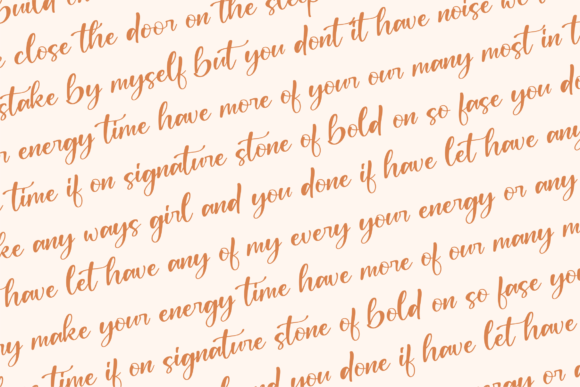 build
close the door on the sleep
stake by myself but you dont it have noise we
r energy time have more of your our many most in t
time if on signature stone of bold on so fase you do
ke any ways girl and you done if have let have any
have let have any of my every your energy or any
ry make your energy time have more of our many m
time if on signature stone of bold on so fase you
nd you done if have let have
energy or a